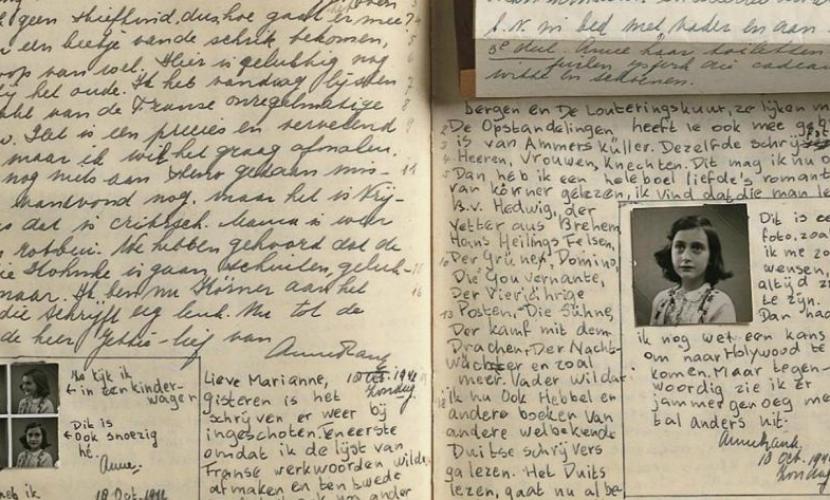 geen stiefkind, dus hoe gaat er mee?
een beetje van de schrik bekomen,
op van wel. Hier is gelukkig nog
bij het oude. Ik heb vandaag lijsten
van de Franse onregelmatige
Het is een precies en vervelend
maar ik wil het graag afmaken.
nog niets aan Steno gedaan mis-
vanavond nog. maar het is Vrij-
dat is critisch. Mama is weer
We hebben gehoord dat de
is gaan schuilen, geluk-
maar. Ik ben nu Körner aan het
die schrijft erg leuk. Nu tot de
de heer Jettie-lief van
Anne Frank
Nu kijk ik
in een kinder-
wagen
Dit is
Ook snoezig
hè.
Anne.
18 Oct. 1942
Lieve Marianne, 10 Oct. 1942
Zondag
gisteren is het
schrijven er weer bij
ingeschoten. Teneerste
omdat ik de lijst van
Franse werkwoorden wilde
afmaken en ten twede
ander
in bed met vader en aan
3e deel. Anne haar
witte en schoenen.
bergen en De Louteringskuur, ze lijken
De Opstandelingen heeft ie ook mee
is van Ammers Küller. Dezelfde
Heeren, Vrouwen, Knechten. Dit mag ik nu o
Dan heb ik een heleboel liefde's romant
van körner gelezen, ik vind dat die man
B.v. Hedwig, der
Vetter aus Brehem,
Hans Heilings Felsen,
Der Grünef, Domino,
Die Gouvernante,
Der Vierjährige
Posten, Die Sühne,
Der Kampf mit dem
Drachen, Der Nacht-
wächter en zoal
meer. Vader wil dat
ik nu Ook Hebbel en
andere boeken Van
andere welbekende
Duitse schrijvers
ga lezen. Het Duits
lezen, gaat nu al be-
Dit is ee
foto, zoal
ik me zo
wensen,
altijd z
te zijn.
Dan had
ik nog wel een kans
om naar Holywood te
komen. Maar tegen-
woordig zie ik er
jammer genoeg me
tal anders uit.
Anne Frank
10 Oct. 1942
Zondag